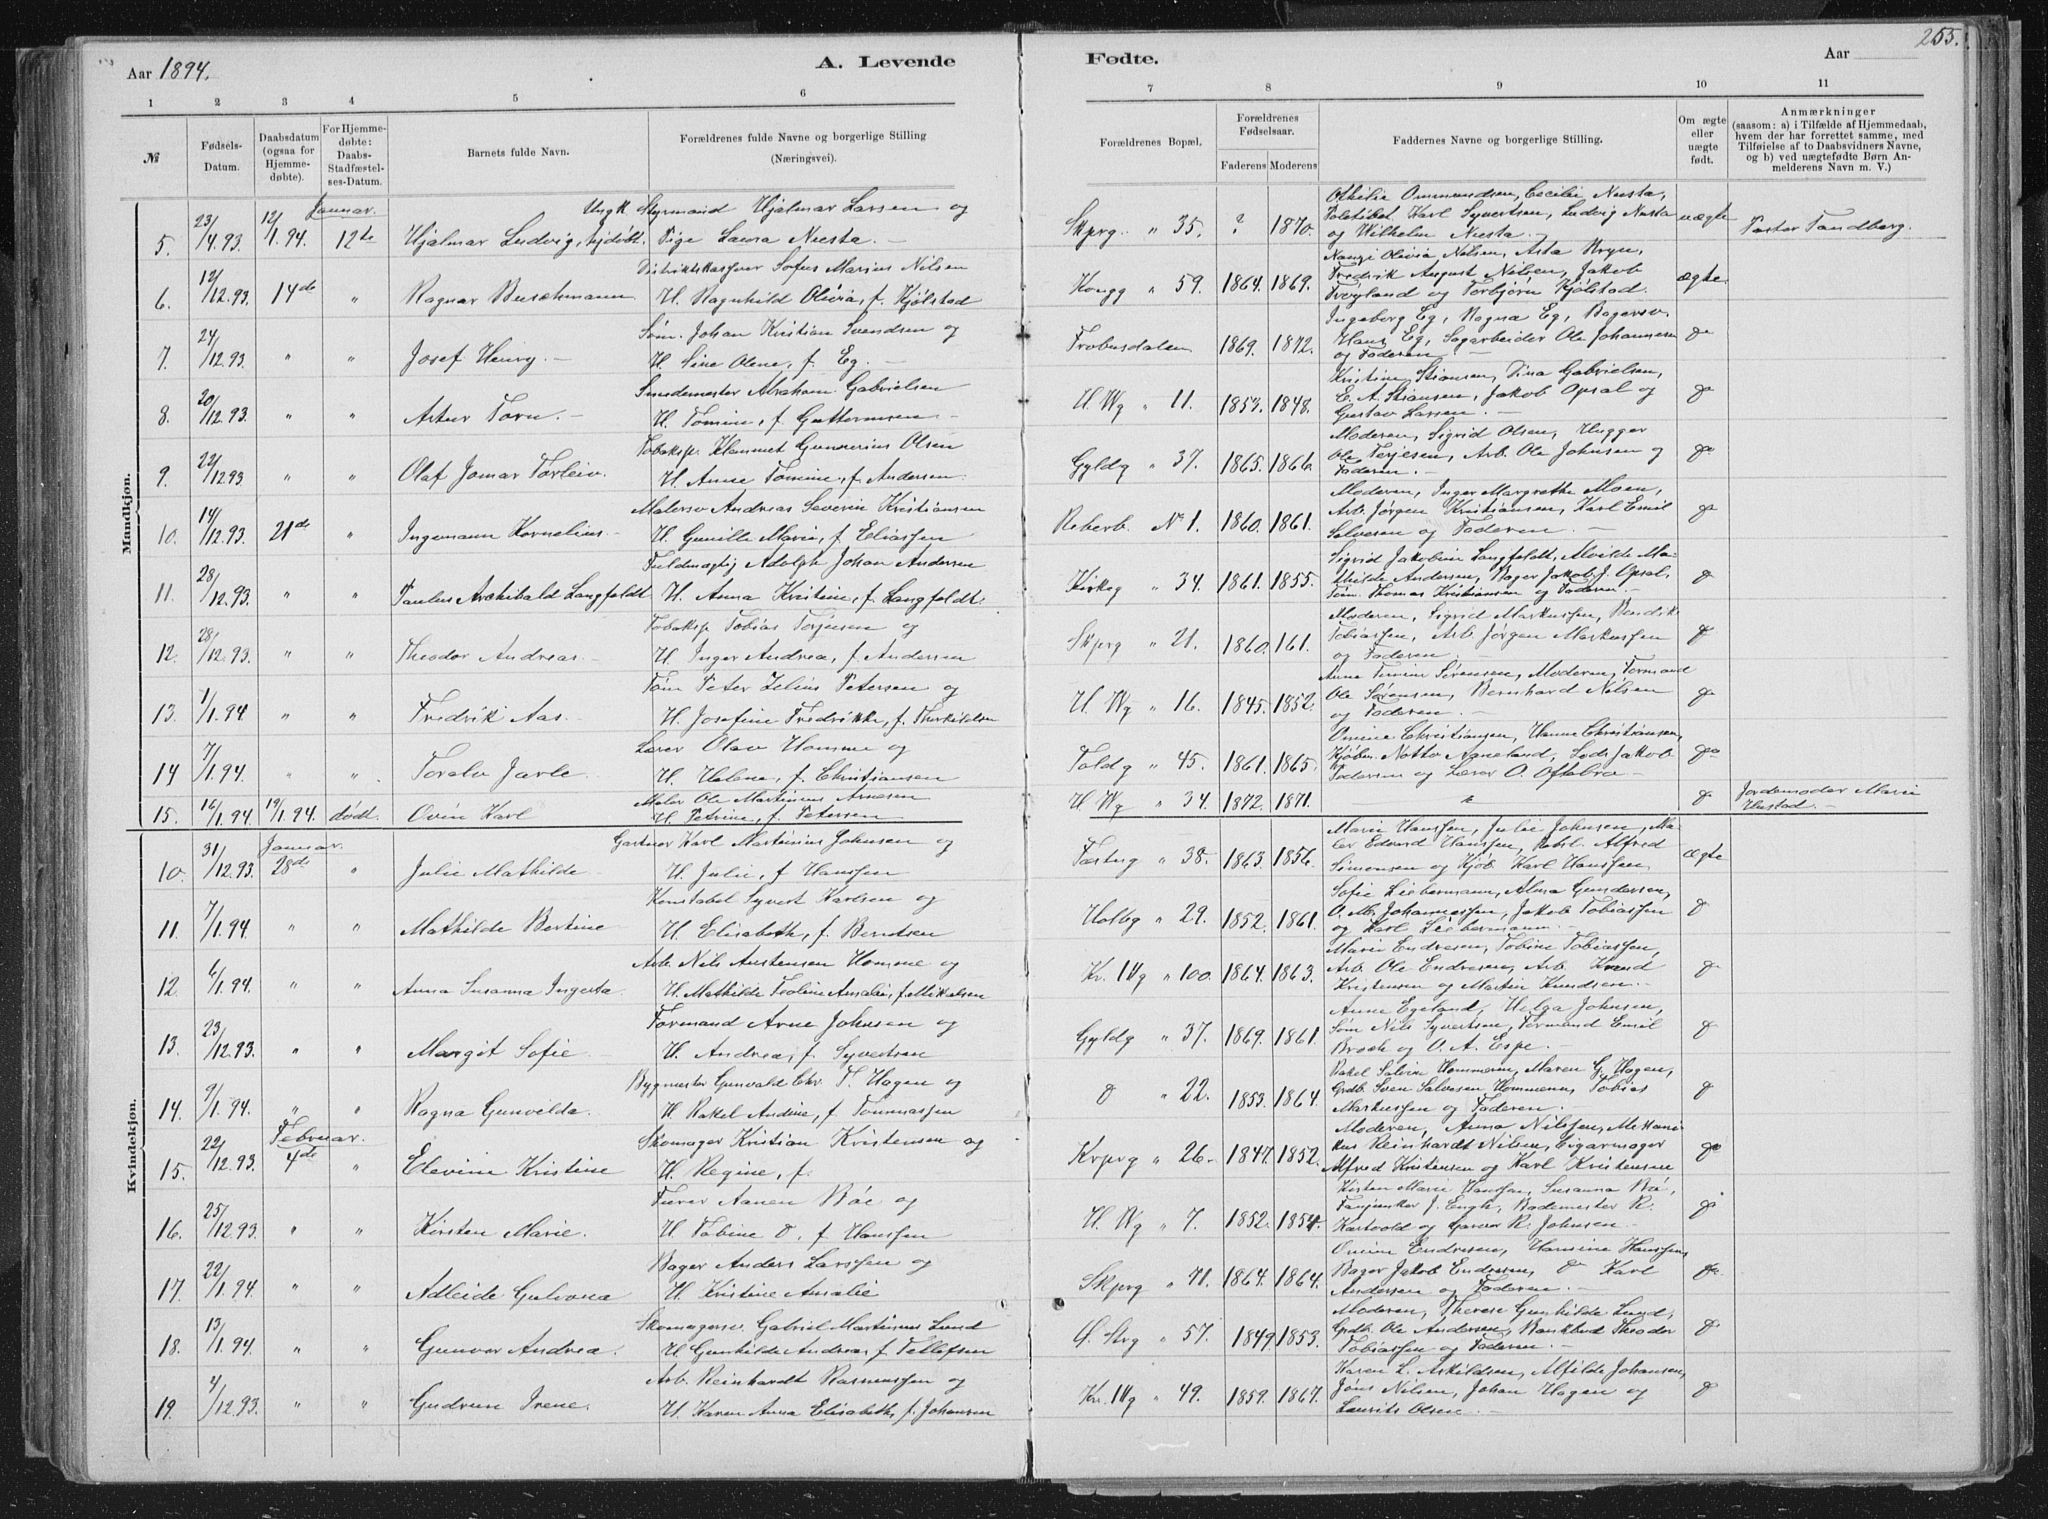 Aar 1894.
A. Levende
Fødte.
Aar
253.
1 2 3 4 5 6 7 8 9 10 11
№
Fødsels-Datum.
Daabsdatum (ogsaa for Hjemme-døbte).
For Hjemme-døbte: Daabs-Stadfæstel-ses-Datum.
Barnets fulde Navn.
Forældrenes fulde Navne og borgerlige Stilling (Næringsvei).
Forældrenes Bopæl,
Forældrenes Fødselsaar.
Faderens Moderens
Faddernes Navne og borgerlige Stilling.
Om ægte eller uægte født.
Anmærkninger
(saasom: a) i Tilfælde af Hjemmedaab, hvem der har forrettet samme, med Tilføielse af to Daabsvidners Navne, og b) ved uægtefødte Børn An-melderens Navn m. V.)
Mandkjøn.
Januar.
5. 23/4.93. 12/1.94. 12te Hjalmar Ludvig, hjdøbt. Ungk Styrmand Hjalmar Larsen og
Pige Laura Næsta. Skprg. " 35. ? 1870. Othilia Ommundsen, Cecilie Næsta,
Politibet. Karl Syvertsen, Ludvig Næsta
og Wilhelm Næsta. uægte Pastor Tandberg.
6. 12/12.93. 14de " Ragnar Buschmann Distriktskasserer Sofus Marius Nilsen
H. Ragnhild Olivia, f. Kjølstad Kongg " 59. 1864. 1869. Nanzi Olivia Nilsen, Asta Bryn,
Fredrik August Nilsen, Jakob
Frøyland og Torbjørn Kjølstad. ægte.
7. 24/12.93. " " Josef Henry. Søm. Johan Kristian Svendsen og
H. Sine Olene, f. Eg. Frobusdalen 1869. 1872. Ingeborg Eg, Ragna Eg, Bagersv
Hans Eg, Sagarbeider Ole Johannesen
og Faderen do
8. 20/12.93. " " Artur Torn. Smedemester Abraham Gabrielsen
H. Tomine, f. Guttormsen H. Wg " 11. 1853. 1848. Kristine Stiansen, Dina Gabrielsen,
E. A. Stiansen, Jakob Opsal og
Gustav Larsen. do
9. 22/12.93 " " Olaf Jomar Torleiv. Tobaksp. Hammet Gunnerius Olsen
H. Anne Tomine, f. Andersen. Gyldg " 37. 1865. 1866. Moderen, Sigrid Olsen, Hugger
Ole Terjesen, Arb. Ole Johnsen og
Faderen. do
10. 14/12.93. 21de " Ingemann Kornelius. Malersv Andreas Severin Kristiansen
H. Gunille Marie, f. Eliassen Reberb. No 1. 1860. 1861. Moderen, Inger Margrethe Moen,
Arb. Jørgen Kristiansen, Karl Emil
Salvesen og Faderen. do
11. 28/12.93 " " Paulus Archibald Langfeldt Fuldmægtig Adolph Johan Andersen
H. Anna Kristine, f. Langfeldt. Kirkeg " 34. 1861. 1855. Sigrid Jakobine Langfeldt, Alvilde Ma-
thilde Andersen, Bager Jakob J. Opsal,
Tøm. Thomas Kristiansen og Faderen. do
12. 28/12.93 " " Theodor Andreas. Tobaksp Tobias Terjesen og
H. Inger Andrea, f. Andersen Skprg " 21. 1860. 161. Moderen, Sigrid Markussen, Bendik
Tobiassen, Arb. Jørgen Markussen
og Faderen. do
13. 1/1.94. " " Fredrik Aas. Tøm Peter Zelius Petersen og
H. Josefine Fredrikke, f. Therkildsen H. Wg " 16. 1845. 1852. Anne Tomine Sørensen, Moderen, Formand
Ole Sørensen, Bernhard Nilsen
og Faderen. do
14 7/1.94. " " Toralv Jarle. Lærer Olav Homme og
H. Helene, f. Christiansen Toldg " 45. 1861. 1865. Omine Christiansen, Hanne Christiansen,
Kjøbm. Notto Aaneland, Jakob
Pedersen og Lærer O. Oftebro. do
15. 16/1.94. 19/1.94. dødt. Ovin Karl Maler Ole Martinius Arnesen
H. Petrine, f. Petersen H. Wg " 34. 1872. 1871. do Jordemoder Marie
Hestad.
Kvindekjøn.
Januar.
10. 31/12.93. 28de " Julie Mathilde Gartner Karl Martinius Johnsen og
H. Julie, f. Hanssen Fæstng " 38. 1863 1856. Marie Hanssen, Julie Johnsen, Ma-
ler Edvard Hanssen, Alfred
Simonsen og Kjøb. Karl Hanssen. ægte
11. 7/1.94. " " Mathilde Bertine Konstabel Syvert Karlsen og
H. Elisabeth, f. Berntsen Holbg " 29. 1852. 1861. Sofie Liebermann, Alma Gundersen,
O. M. Johannessen, Jakob Tobiassen
og Karl Liebermann. do
12. 6/1.94. " " Anna Susanna Ingerta. Arb. Nils Austensen Homme og
H. Mathilde Teoline Amalie, f. Mikalsen Kr. IVg " 100. 1864. 1863. Marie Endresen, Tobine Tobiassen,
Arb. Ole Endresen, Arb. Knud
Kristensen og Martin Knudsen. do
13. 23/12.93. " " Margit Sofie Formand Arne Johnsen og
H. Andrea, f. Syvertsen Gyldg " 37. 1869. 1861. Anne Egeland, Helga Johnsen,
Søm Nils Syvertsen, Formand Emil
Broch og O. A. Espe. do
14. 9/1.94. " " Ragna Gunvilda. Bygmester Gunvald Chr. T. Hagen og
H. Rakel Andine, f. Tommassen do " 22. 1853. 1864. Rakel Salvine Hommeren, Maren G. Hagen,
Grdb. Sven Salvesen Hommeren, Tobias
Markussen og Faderen. do
Februar.
15. 22/12.93. 4de " Elevine Kristine Skomager Kristian Kristensen og
H. Regine, f. Krprg " 26. 1847. 1852. Moderen, Anna Nilsen, Mekani-
kus Reinhardt Nilsen, Cigarmager
Alfred Kristensen og Karl Kristensen do
16. 25/12.93. " " Kirsten Marie. Furer Aanen Bøe og
H. Tobine O, f. Hanssen H. Wg " 7. 1852. 1854. Kirsten Marie Hanssen, Susanna Bø,
Fanejunker J. Engh, Bademester R.
Kartvold og Garver R. Johnsen. do
17. 22/1.94. " " Adleide Gulovna Bager Anders Larssen og
H. Kristine Amalie Skprg " 71. 1864. 1864. Omine Endresen, Hansine Hanssen,
Bager Jakob Endresen, do Karl
Andersen og Faderen. do
18. 13/1.94. " " Gunvor Andrea. Skomagersv. Gabriel Martinius Lund
H. Gunhilde Andrea, f. Tellefsen Ø. Strg " 57. 1849 1853. Moderen, Therese Gunhilde Lund,
Grdb. Ole Andersen, Bankbud Theodor
Tobiassen og Faderen. do
19. 4/12.93. " " Gudrun Irene. Arb. Reinhardt Rasmussen og
H. Karen Anna Elisabeth, f. Johansen Kr. IVg " 49. 1859. 1867. Karen L. Askildsen, Alfilde Johansen,
Jøns Nilsen, Johan Hagen og
Laurits Olsen. do